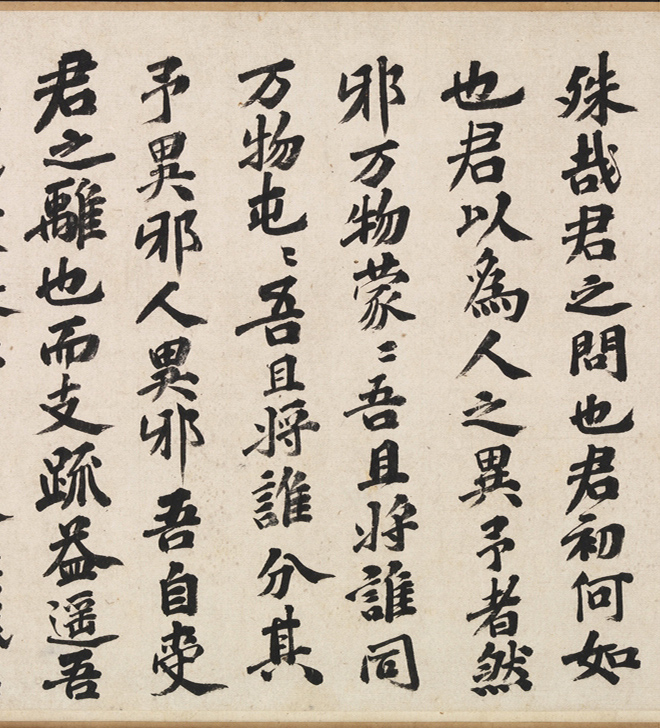 殊哉君之問也君初何如
也君以為人之異予者然
邪万物蒙〻吾且将誰同
万物屯〻吾且将誰分其
予異邪人異邪吾自变
君之離也而支疏益遥吾